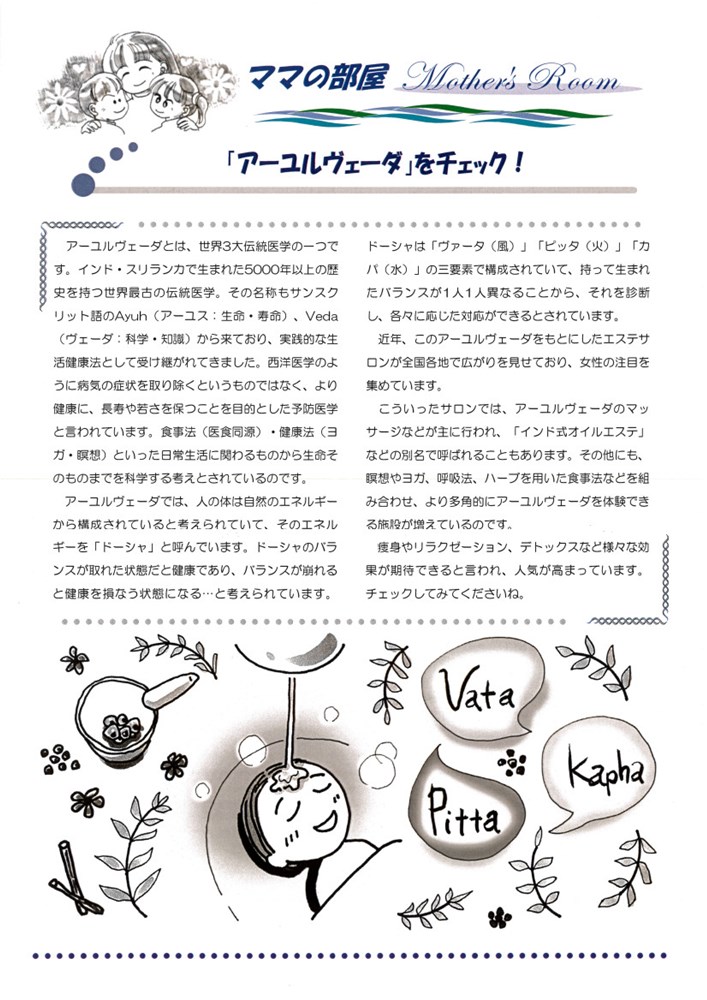 ママの部屋 Mother's Room
「アーユルヴェーダ」をチェック！
アーユルヴェーダとは、世界3大伝統医学の一つで
す。インド・スリランカで生まれた5000年以上の歴
史を持つ世界最古の伝統医学。その名称もサンスク
リット語のAyuh（アーユス：生命・寿命）、Veda
（ヴェーダ：科学・知識）から来ており、実践的な生
活健康法として受け継がれてきました。西洋医学のよ
うに病気の症状を取り除くというものではなく、より
健康に、長寿や若さを保つことを目的とした予防医学
と言われています。食事法（医食同源）・健康法（ヨ
ガ・瞑想）といった日常生活に関わるものから生命そ
のものまでを科学する考えとされているのです。
アーユルヴェーダでは、人の体は自然のエネルギー
から構成されていると考えられていて、そのエネル
ギーを「ドーシャ」と呼んでいます。ドーシャのバラ
ンスが取れた状態だと健康であり、バランスが崩れる
と健康を損なう状態になる…と考えられています。
ドーシャは「ヴァータ（風）」「ピッタ（火）」「カ
パ（水）」の三要素で構成されていて、持って生まれ
たバランスが1人1人異なることから、それを診断
し、各々に応じた対応ができるとされています。
近年、このアーユルヴェーダをもとにしたエステサ
ロンが全国各地で広がりを見せており、女性の注目を
集めています。
こういったサロンでは、アーユルヴェーダのマッ
サージなどが主に行われ、「インド式オイルエステ」
などの別名で呼ばれることもあります。その他にも、
瞑想やヨガ、呼吸法、ハーブを用いた食事法などを組
み合わせ、より多角的にアーユルヴェーダを体験でき
る施設が増えているのです。
痩身やリラクゼーション、デトックスなど様々な効
果が期待できると言われ、人気が高まっています。
チェックしてみてくださいね。
Vata
Kapha
Pitta